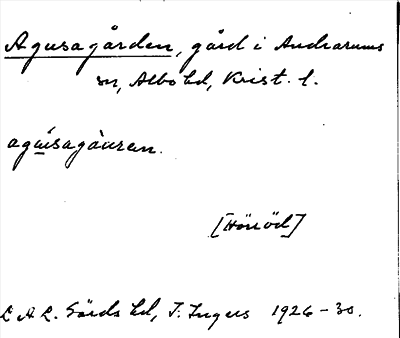 Agusagården, gård i Andrarums
sn, Albo hd, Krist. l.
agúsagàuren.
[Hörröd]
L A L. Gärds hd, I. Ingers 1926-30.